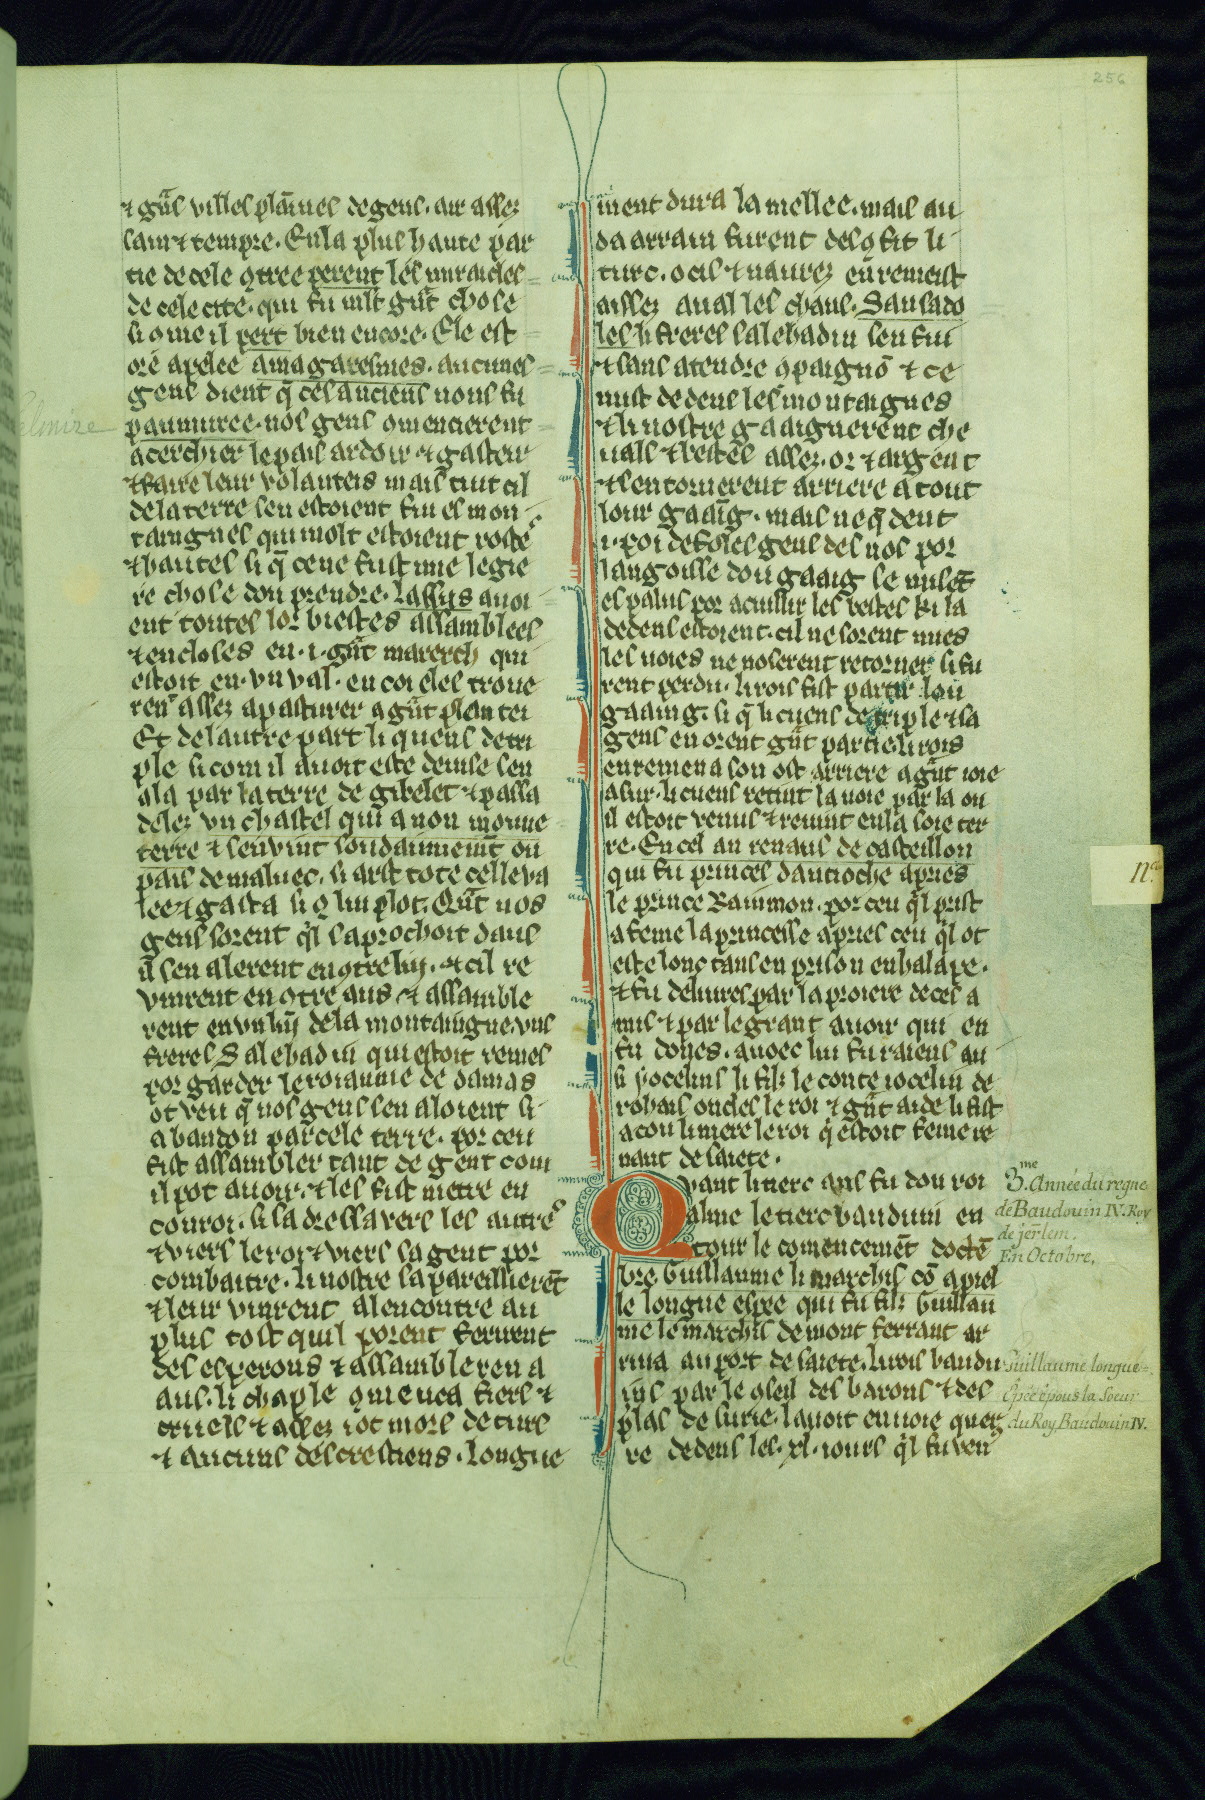 256
⁊ gñs villes plaīnes de gens. air assez
sain ⁊ tempre. En la plus haute par
tie de cele ꝯtree perent les muraides
de cele cite. qui fu mlt gñt chose
si ome il pert bien encore. Ele est
ore apelee amagaresmes. aucunes
gens dient q̄ ces anciens nons fu
paumiree. nos gens omencierent
a cerchier le pais ardoir ⁊ gasteir
⁊ faire leur volanteis mais tuit cil
de la terre sen estoient fui es mon
taingnes qui molt estoient roste
⁊ hautes si q̄ ce ne fust mie legie
re chose dou prendre. lassus auoi
ent toutes lor biestes assamblees
⁊ encloses en .i. gñt marerch qui
estoit en .vn val. en coi eles troue
rent assez a pasturer a gñt plentei
Et de lautre part li queus de tri
ple si com il auoit este deuise sen
ala par la terre de gibelet ⁊ passa
delez vn chastel qui a non moine
terre ⁊ sen vint soudainnemt ou
pais de maluec. si arst tote celle va
lee ⁊ gasta si ꝯ lui plot. Qñt nos
gens sorent ql saprochoit dans
il sen alerent en ꝯtre lui. ⁊ cil re
vinrent en ꝯtre aus ⁊ assamble
rent en vn lui de la montaingne. vns
freres Salehadin qui estoit remes
por garder le roiaume de damas
ot veu q̄ nos gens sen aloient si
a bandon par cele terre. por ceu
fist assambler tant de gent com
il pot auoir. ⁊ les fist metre en
couroi. si sa dressa vers les autres
⁊ viers le roi ⁊ viers sa gent por
combaitre. li nostre sapareillierēt
⁊ leur vinrent a lencontre au
plus tost quil porent ferirent
des esperons ⁊ assamblerena
aus. li chaple ꝯmenca fiers ⁊
cruels ⁊ assez iot mors de turs
⁊ aucuns des crestiens. longue
ment dura la mellee. mais au
daarrain furent descōfit li
turc. ocis ⁊ naurez en remeist
assez aual les chans. Sansado
les li freres salehadin sen fui
⁊ sans atendre ꝯpaignō ⁊ ce
mist dedens les montaignes
⁊ li nostre gaaignerent che
uals ⁊ bestes assez. or ⁊ argent
⁊ sen tornerent arriere a tout
lour gaaīg. mais ne q̄ dent
.i. poi de foles gens des nos por
langoisse dou gaaig se misēt
es palus por acuillir les bestes ki la
dedens estoient. cil ne sorent mies
les uoies ne noserent retorner si fu
rent perdu. li rois fist partir lou
gaaing. si q̄ li cuens de triple ⁊ sa
gens en orent gñt partie. li rois
en remena son ost arriere a gñt ioie
a sur. li cuens retint la uoie par la ou
il estoit venus ⁊ reuint en la soie ter
re. En cel an renaus de casteillon
qui fu princes dantioche apries
le prince Raimmon. por ceu ql prist
a feme la princesse apries ceu ql ot
este lonc tans en prison en halape.
⁊ fu deliures par la proiere de ces a
mis ⁊ par le grant auoir qui en
fu dones. auoec lui fu raiens au
si yocelins li filz le conte iocelin de
rohais oncles le roi ⁊ gñt aide li fist
a cou li mere le roi q̄ estoit feme re
naut de saiete.
Quant li tierc ans fu dou roi
alme le tierc bauduin en
tour le comencemēt doctē
bre Guillaume li marchis cō apiel
le longue espee qui fu filz Guillau
me le marchis de mont ferrant ar
riua au port de saiete. li rois baudu
ins par le oseil des barons ⁊ des
plas de surie. lauoit enuoie quer
re dedens les .xl. iours ql fu ven
3.me Année du regne
de Baudouin IV. Roy
de jer̄lem.
En Octobre.
Guillaume longue=
Epée épous la Soeur
du Roy Baudouin IV.